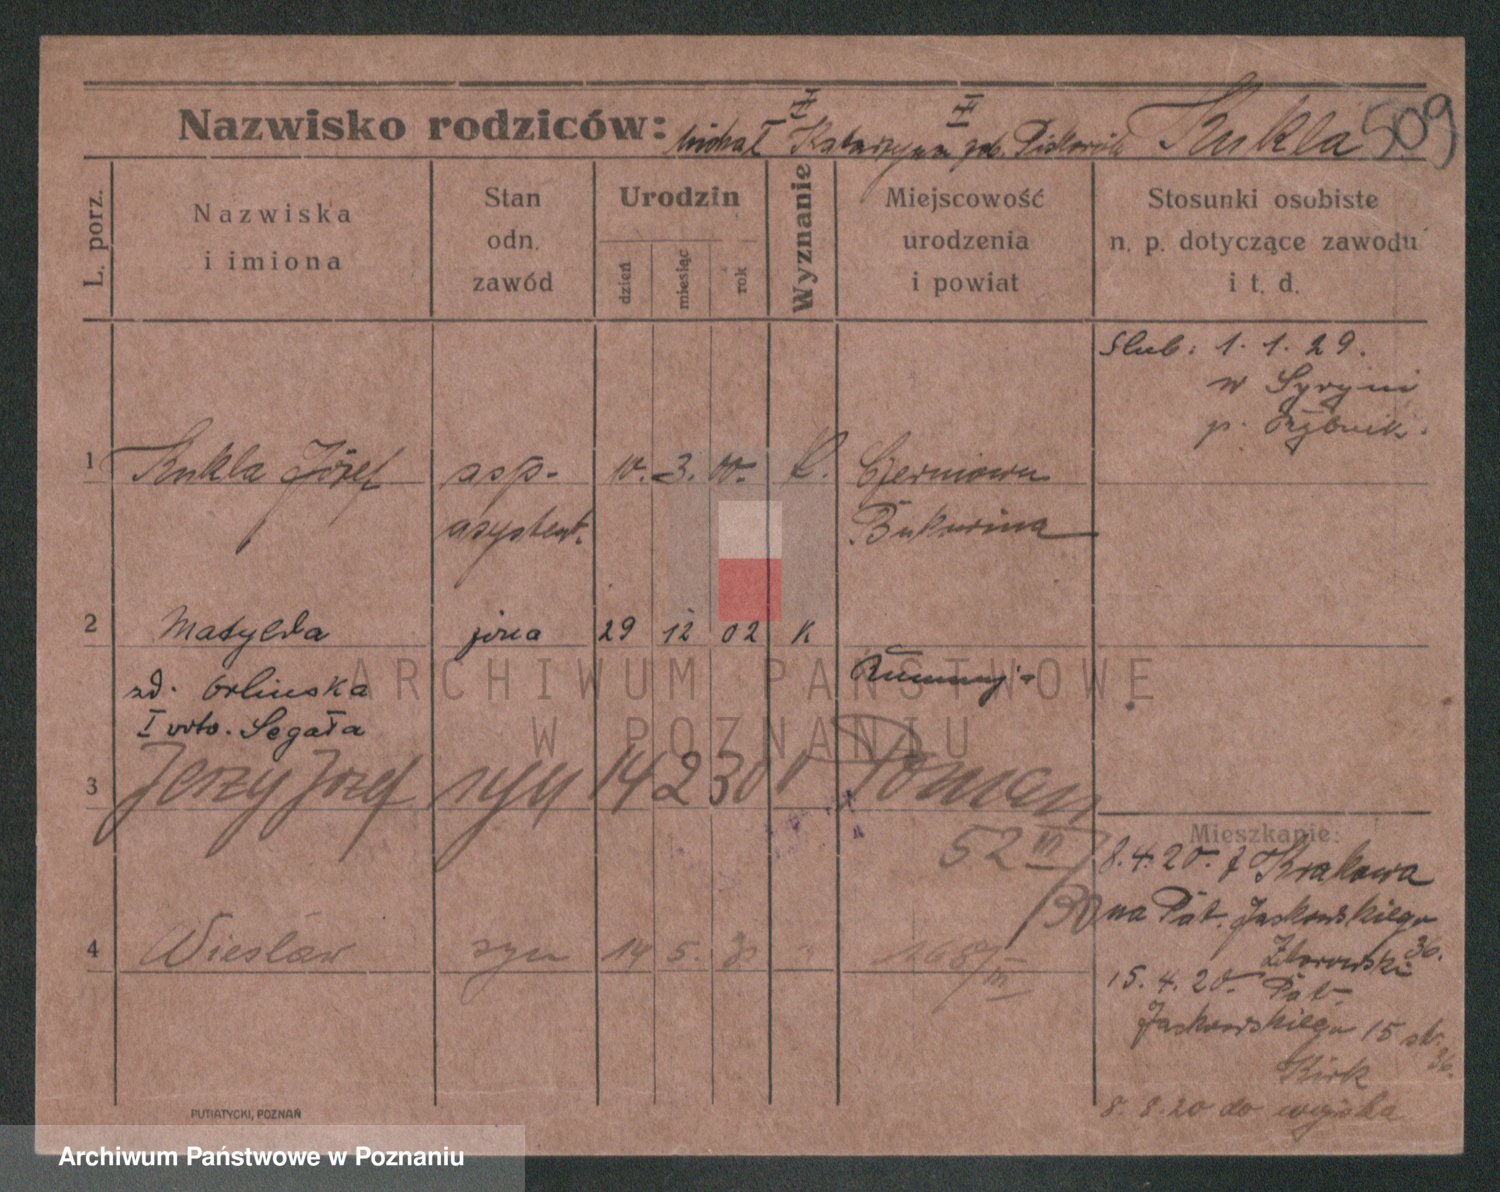 Nazwisko rodziców: Michał Katarzyna Kukla 509
L. porz.
Nazwiska
i imiona
Stan
odn.
zawód
Urodzin
dzień
miesiąc
rok
Wyznanie
Miejscowość
urodzenia
i powiat
Stosunki osobiste
n. p. dotyczące zawodu
i t. d.
Ślub: 1. 1. 29.
w Syryni
p. Rybnik.
1 Kukla Józef asp. 10. 3. 00. k.
asystent. Bukowina
2 Matylda żona 29 12 02 K
zd. Orlinska
I voto. Segała
3 Jerzy Jozef syn 14 2 30
52 III
/30
Mieszkanie:
8. 4. 20. z Krakowa
na Pat. Jackowskiego
36.
4 Wiesław syn 14 5.
168/III
15. 4. 20. Pat.
Jackowskiego 15
36.
8. 8. 20 do wojska
PUTIATYCKI, POZNAŃ
ARCHIWUM PAŃSTWOWE
W POZNANIU
Archiwum Państwowe w Poznaniu